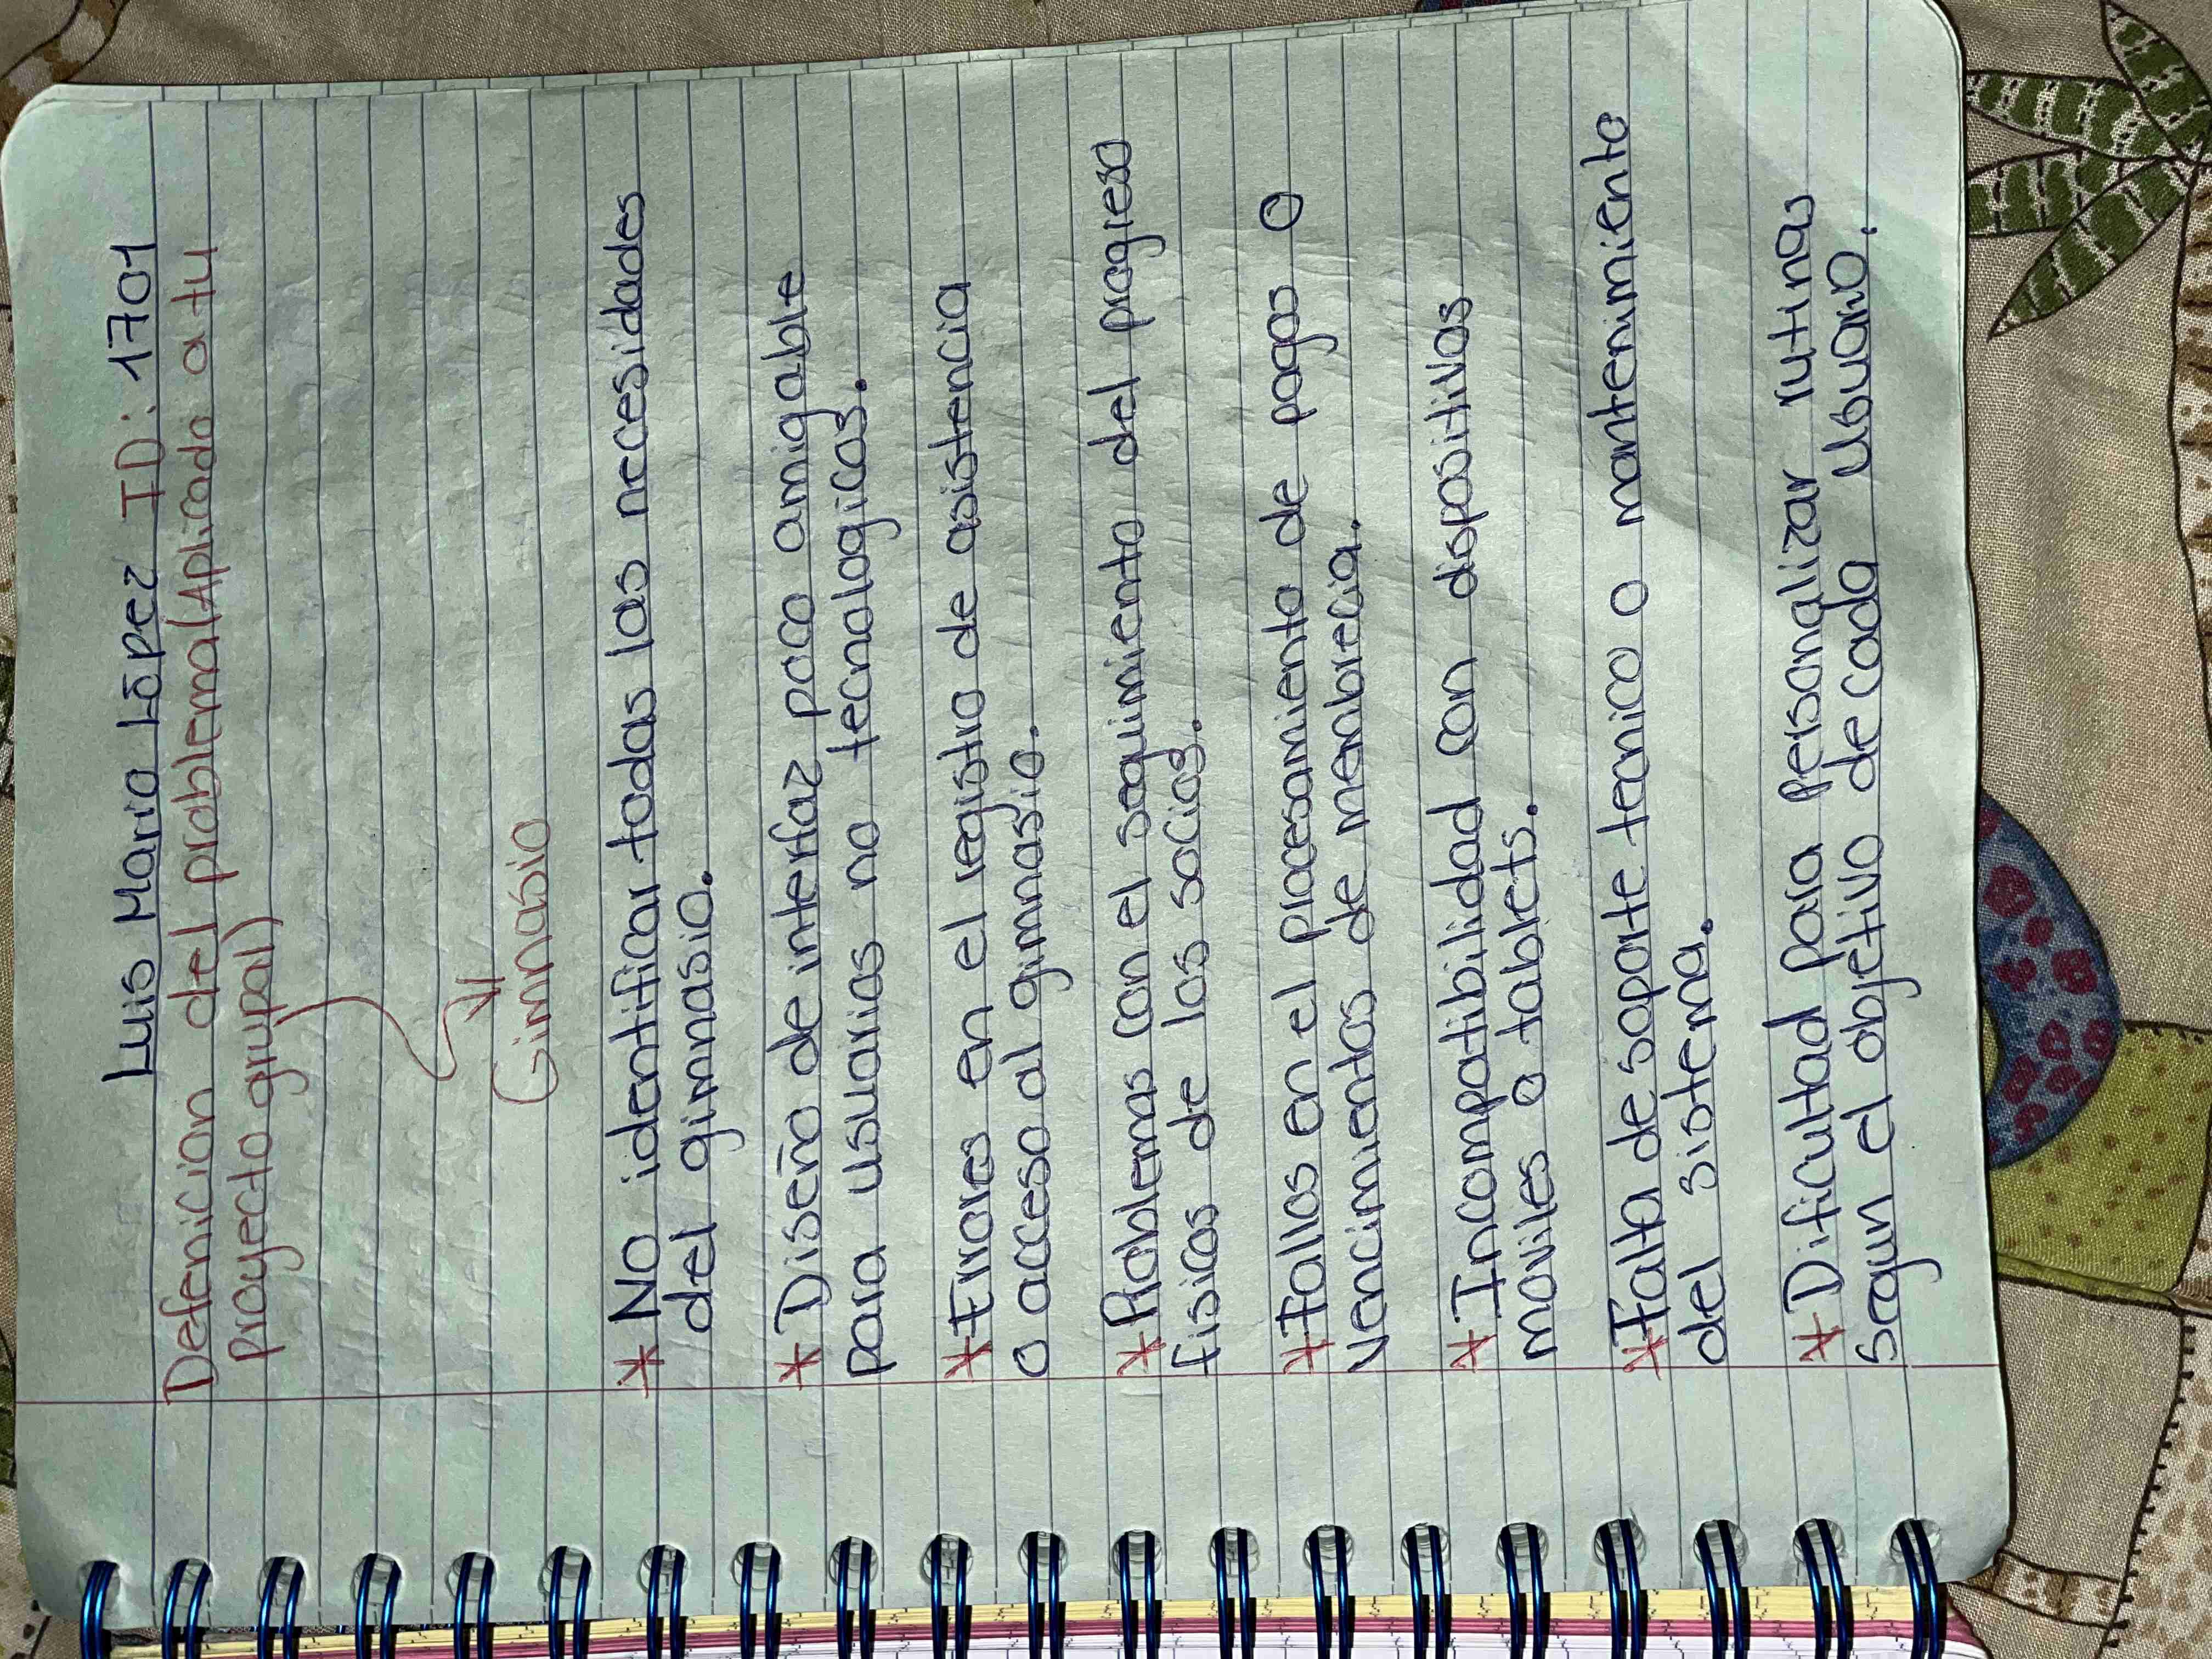 Luis Mario Lōpez ID: 1701
Defenicion del problema(Aplicado a tu
proyecto grupal)
Gimnasio
* No identificar todas las necesidades
del gimnasio.
* Diseño de interfaz poco amigable
para usuarios no tecnologicos.
* Errores en el registro de asistencia
o acceso al gimnasio.
* Problemas con el seguimiento del progreso
fisicos de los socios.
* Fallos en el procesamiento de pagos o
vencimientos de membrecia.
* Incompatibilidad con dispositivos
moviles o tablets.
* Falta de soporte tecnico o mantenimiento
del sistema.
* Dificultad para personalizar rutinas
segun el objetivo de cada usuario.